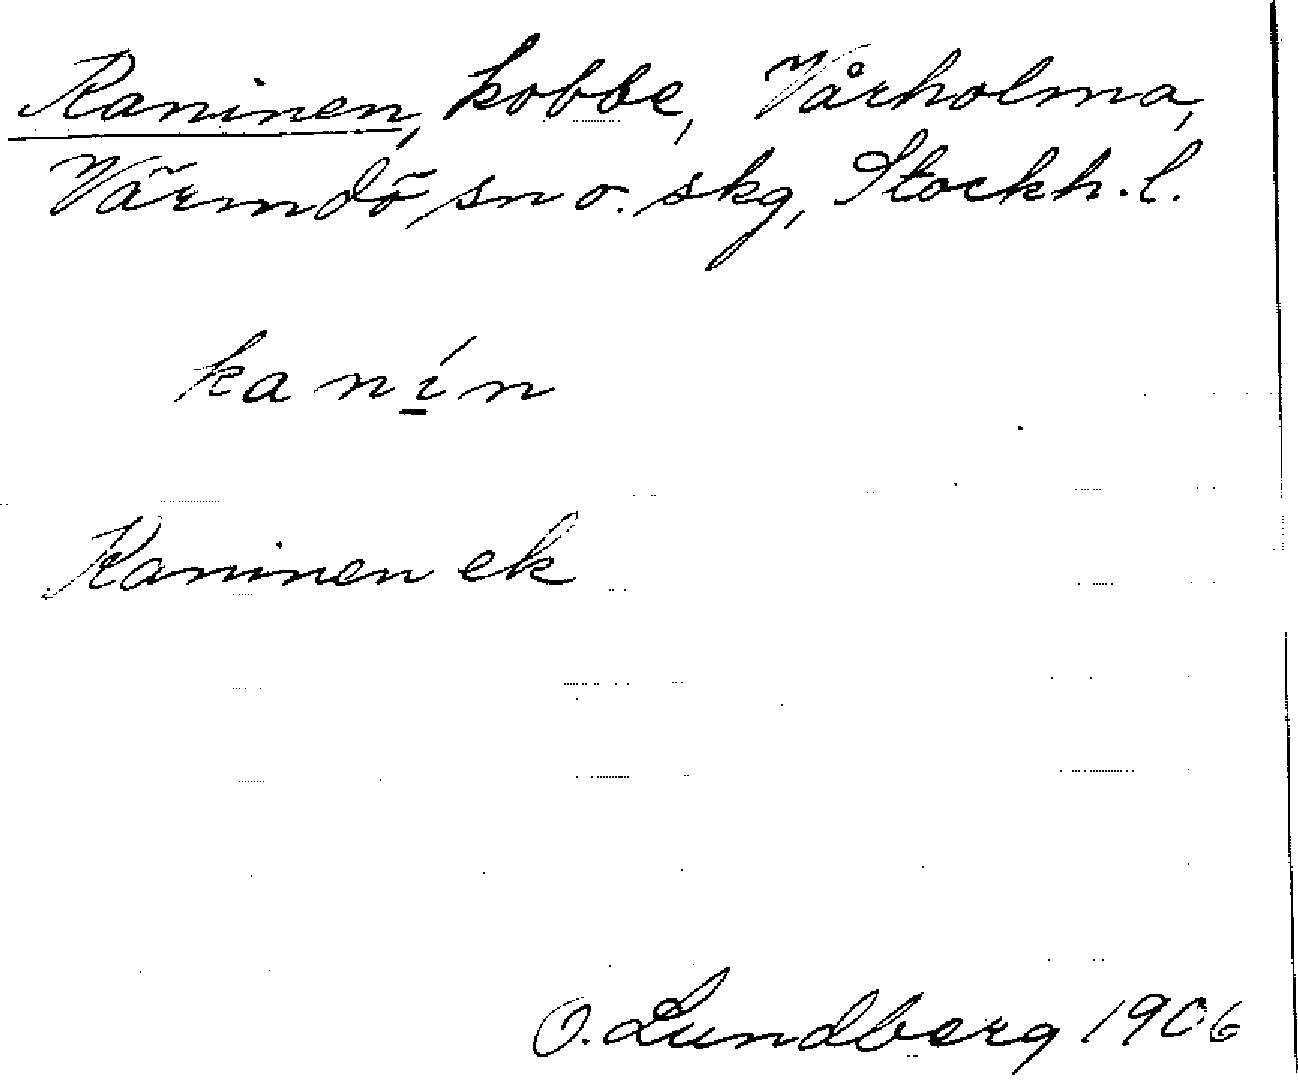 Kaninen, kobbe, Vårholma,
Värmdö sn o. skg, Stockh. l.
kanín
Kaninen ek
O. Lundberg 1906